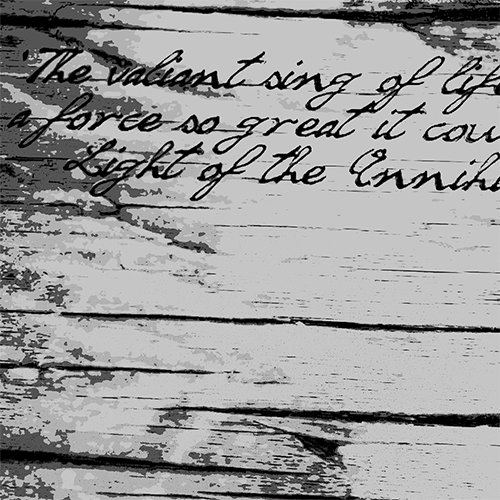 The valiant sing of life
a force so great it cou
Light of the Ennihi